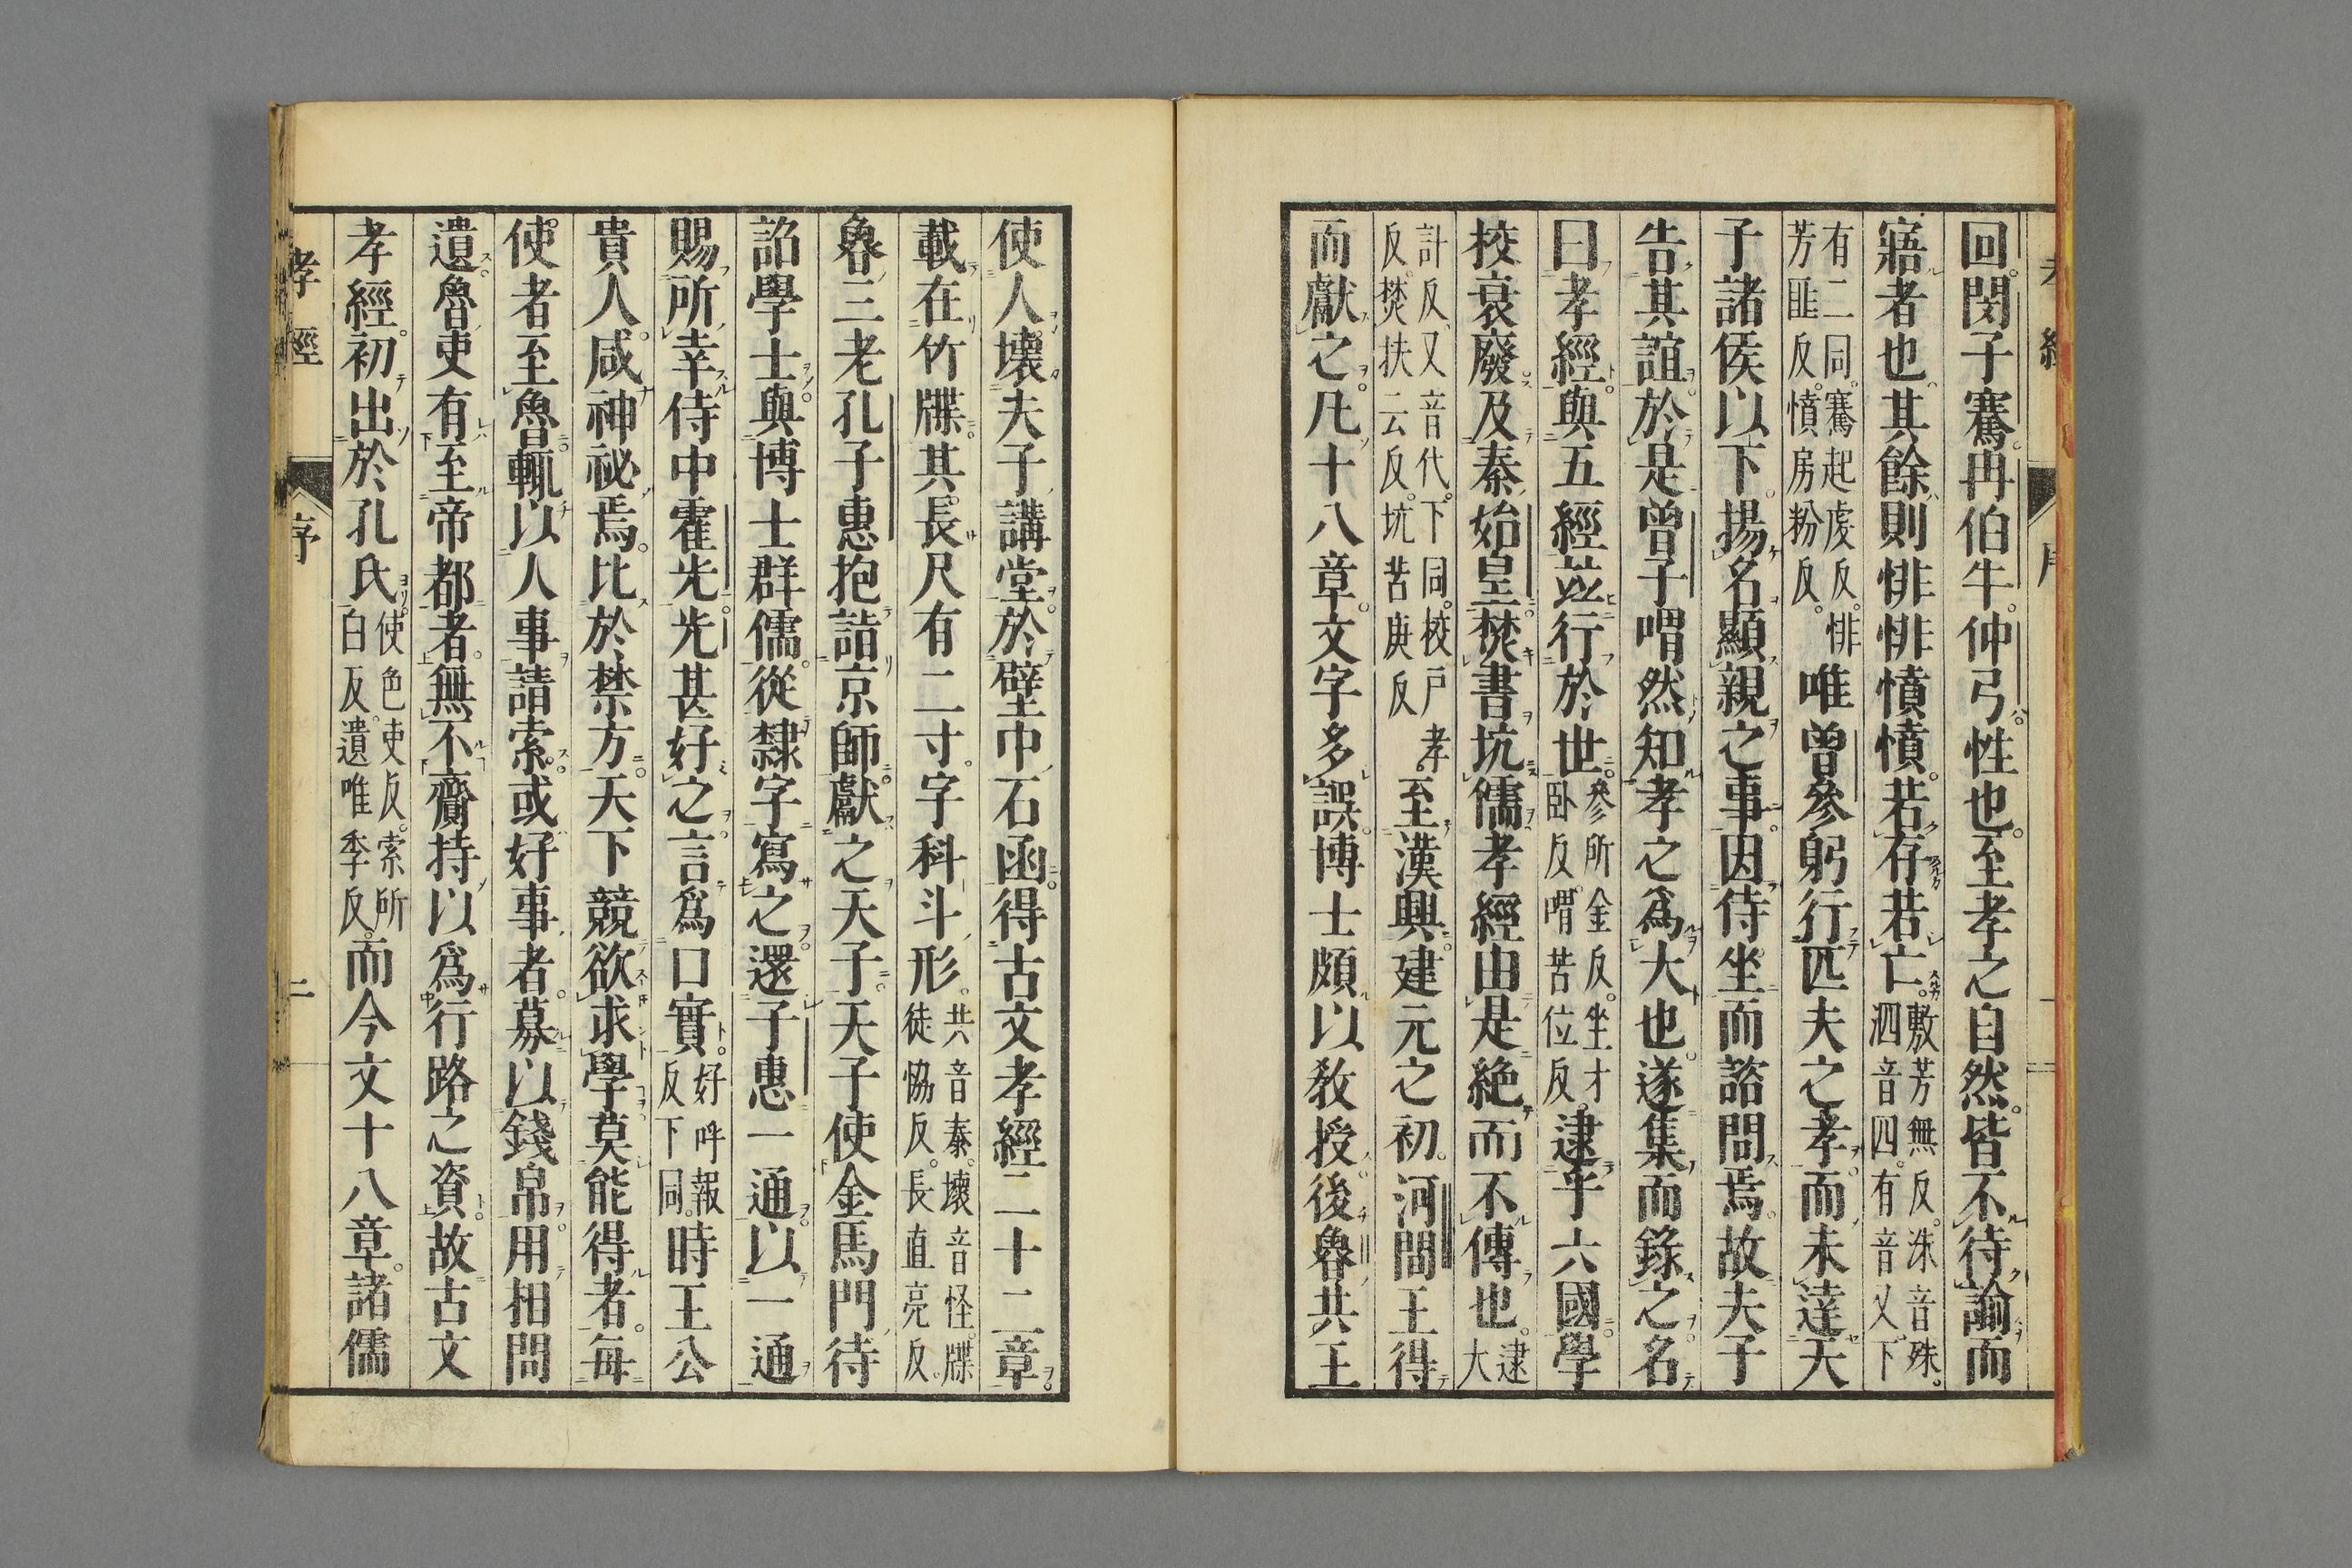 回。閔子騫。冉伯牛。仲弓。性也。至孝之自然。皆不待諭而
寤者也。其餘則悱悱憤憤。若存若亡。敷芳無反。洙音殊。泗音四。有音又。下
有二同。騫起虔反。悱芳匪反。憤房粉反。唯曾參躬行匹夫之孝。而未達天
子諸侯以下。揚名顯親之事。因侍坐而諮問焉。故夫子
告其誼。於是曾子喟然知孝之爲大也。遂集而錄之。名
曰孝經。與五經竝行於世。參所金反。坐才臥反。喟苦位反。逮乎六國。學
挍衰廢。及秦始皇焚書坑儒。孝經由是絶而不傳也。逮大
計反。又音代。下同。挍戸孝反。焚扶云反。坑苦庚反。至漢興。建元之初。河間王得
而獻之。凡十八章。文字多誤。博士頗以敎授。後魯共王
使人壞夫子講堂。於壁中石函。得古文孝經二十二章。
載在竹牒。其長尺有二寸。字科斗形。共音恭。壞音怪。牒徒協反。長直亮反。
魯三老孔子惠抱詣京師。獻之天子。天子使金馬門待
詔學士。與博士群儒。從隸字寫之。還子惠一通。以一通
賜所幸侍中霍光。光甚好之。言爲口實。好呼報反。下同。時王公
貴人。咸神祕焉。比於禁方。天下競欲求學。莫能得者。每
使者至魯。輒以人事請索。或好事者。募以錢帛。用相問
遺。魯吏有至帝都者。無不齎持以爲行路之資。故古文
孝經。初出於孔氏。使色吏反。索所白反。遺唯季反。而今文十八章。諸儒
孝經
序
二